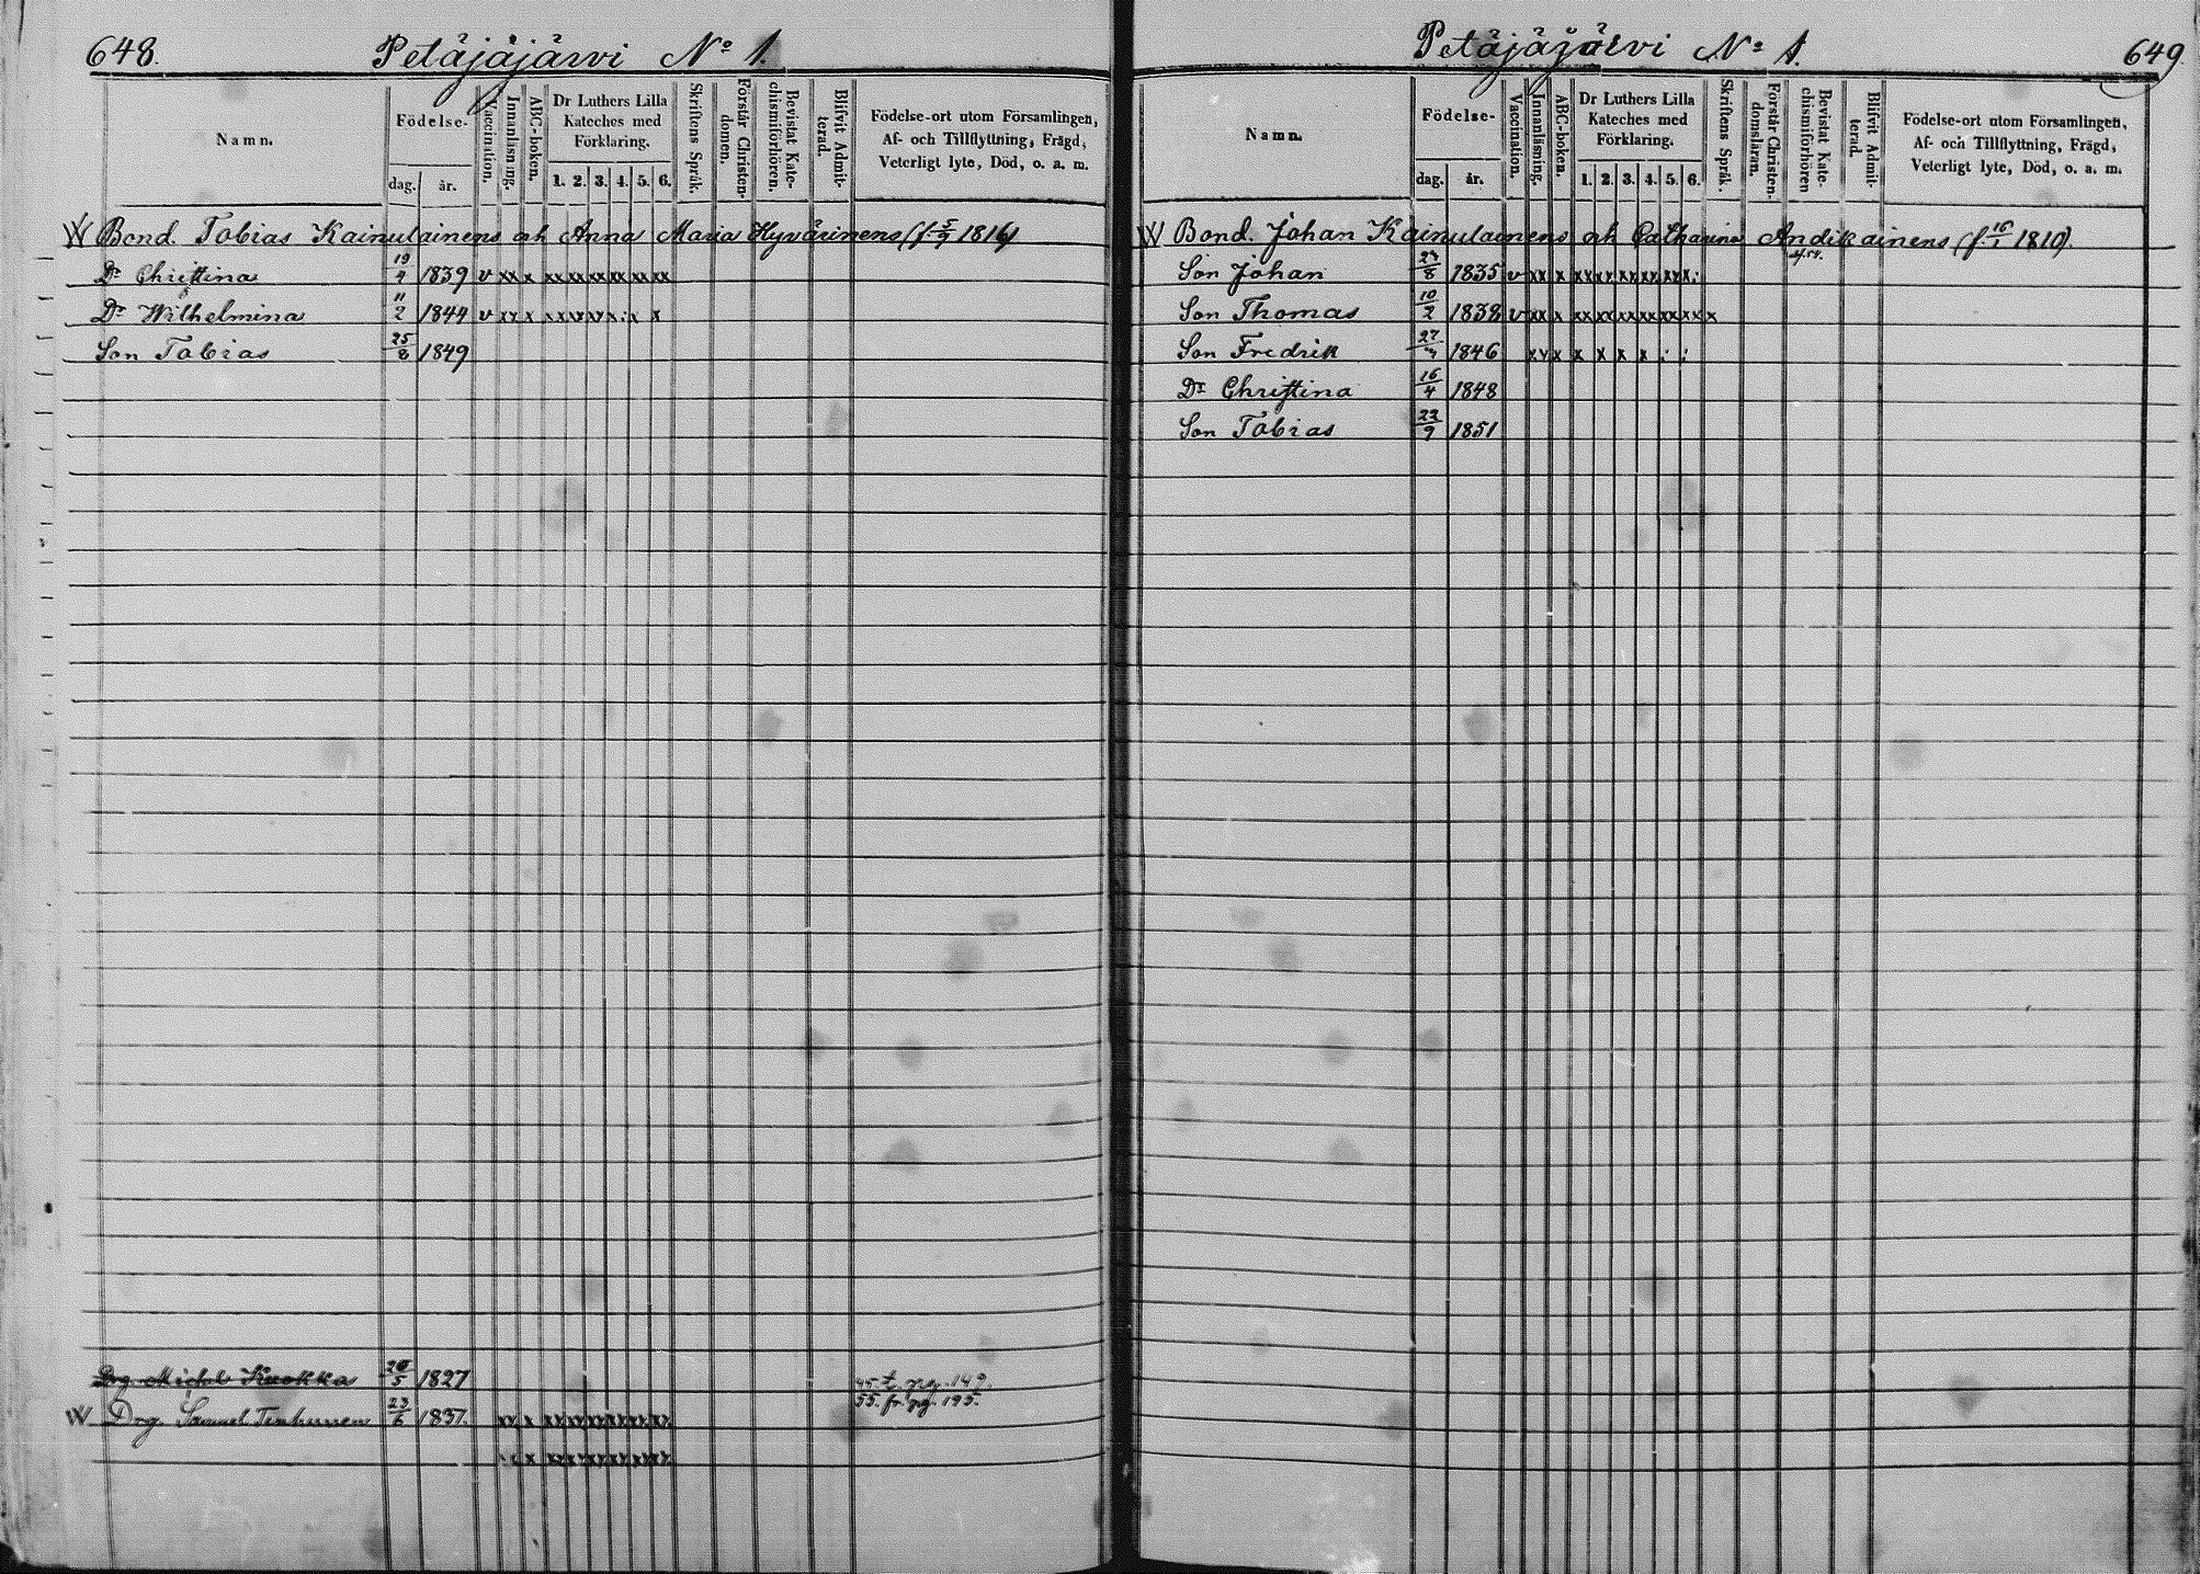 648. Petäjäjärvi No 1.
Namn. Födelse- dag. år. Vaccination. Innanläsning. ABC-boken. Dr Luthers Lilla Kateches med Förklaring. 1. 2. 3. 4. 5. 6. Skriftens Språk. Förstår Christendomen. Bevistat Katechismiförhören. Blifvit Admitterad. Födelse-ort utom Församlingen, Af- och Tillflyttning, Frägd, Veterligt lyte, Död, o. a. m.
W Bond. Tobias Kainulainens och Anna Maria Hyvärinens (f. 5/9 1816)
Dr Christina 19/4 1839 v xx x xx xx xx xx xx xx
Dr Wilhelmina 11/2 1844 v xx x
Son Tobias 25/8 1849
Drg. Michel Kuokka 5 1827 45. t. pg. 149.
55. fr. pg. 195.
W Drg. Samuel Tenhunen 23/6 1837. xx x xx xx xx xx xx xx
x xx xx xx xx xx xx
Petäjäjärvi No 1. 649
Namn. Födelse- dag. år. Vaccination. Innanläsning. ABC-boken. Dr Luthers Lilla Kateches med Förklaring. 1. 2. 3. 4. 5. 6. Skriftens Språk. Förstår Christendomsläran. Bevistat Katechismiförhören Blifvit Admitterad. Födelse-ort utom Församlingen, Af- och Tillflyttning, Frägd, Veterligt lyte, Död, o. a. m.
W Bond. Johan Kainulainens och Catharina Andikainens (f. 16/1 1810).
Son Johan 8 1835 v xx x xx xx xx xx xx x.
Son Thomas 10/2 1838 v xx x xx xx xx xx xx xx x
Son Fredrik 27 1846 x x x x x x x
Dr Christina 16/4 1848
Son Tobias 22/9 1851